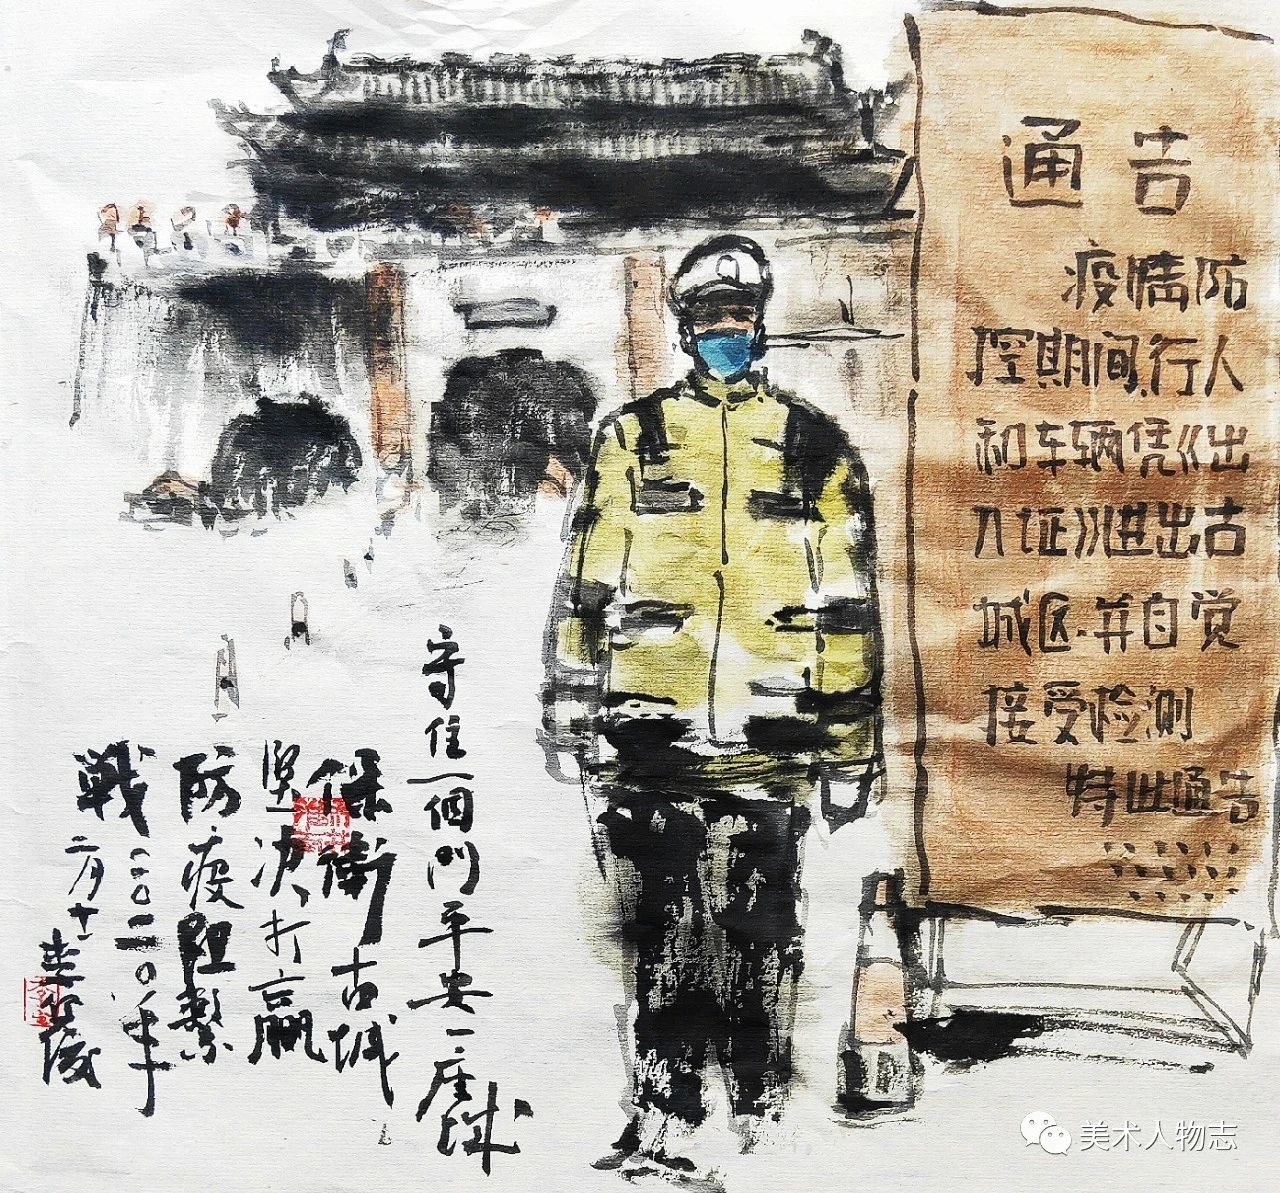 通告
疫情防
控期间,行人
和车辆凭《出
入证》进出古
城区.并自觉
接受检测
特此通告
守住一個門平安一座城
保衛古城
坚决打赢
防疫阻
戰二〇二〇年
二月十
美术人物志